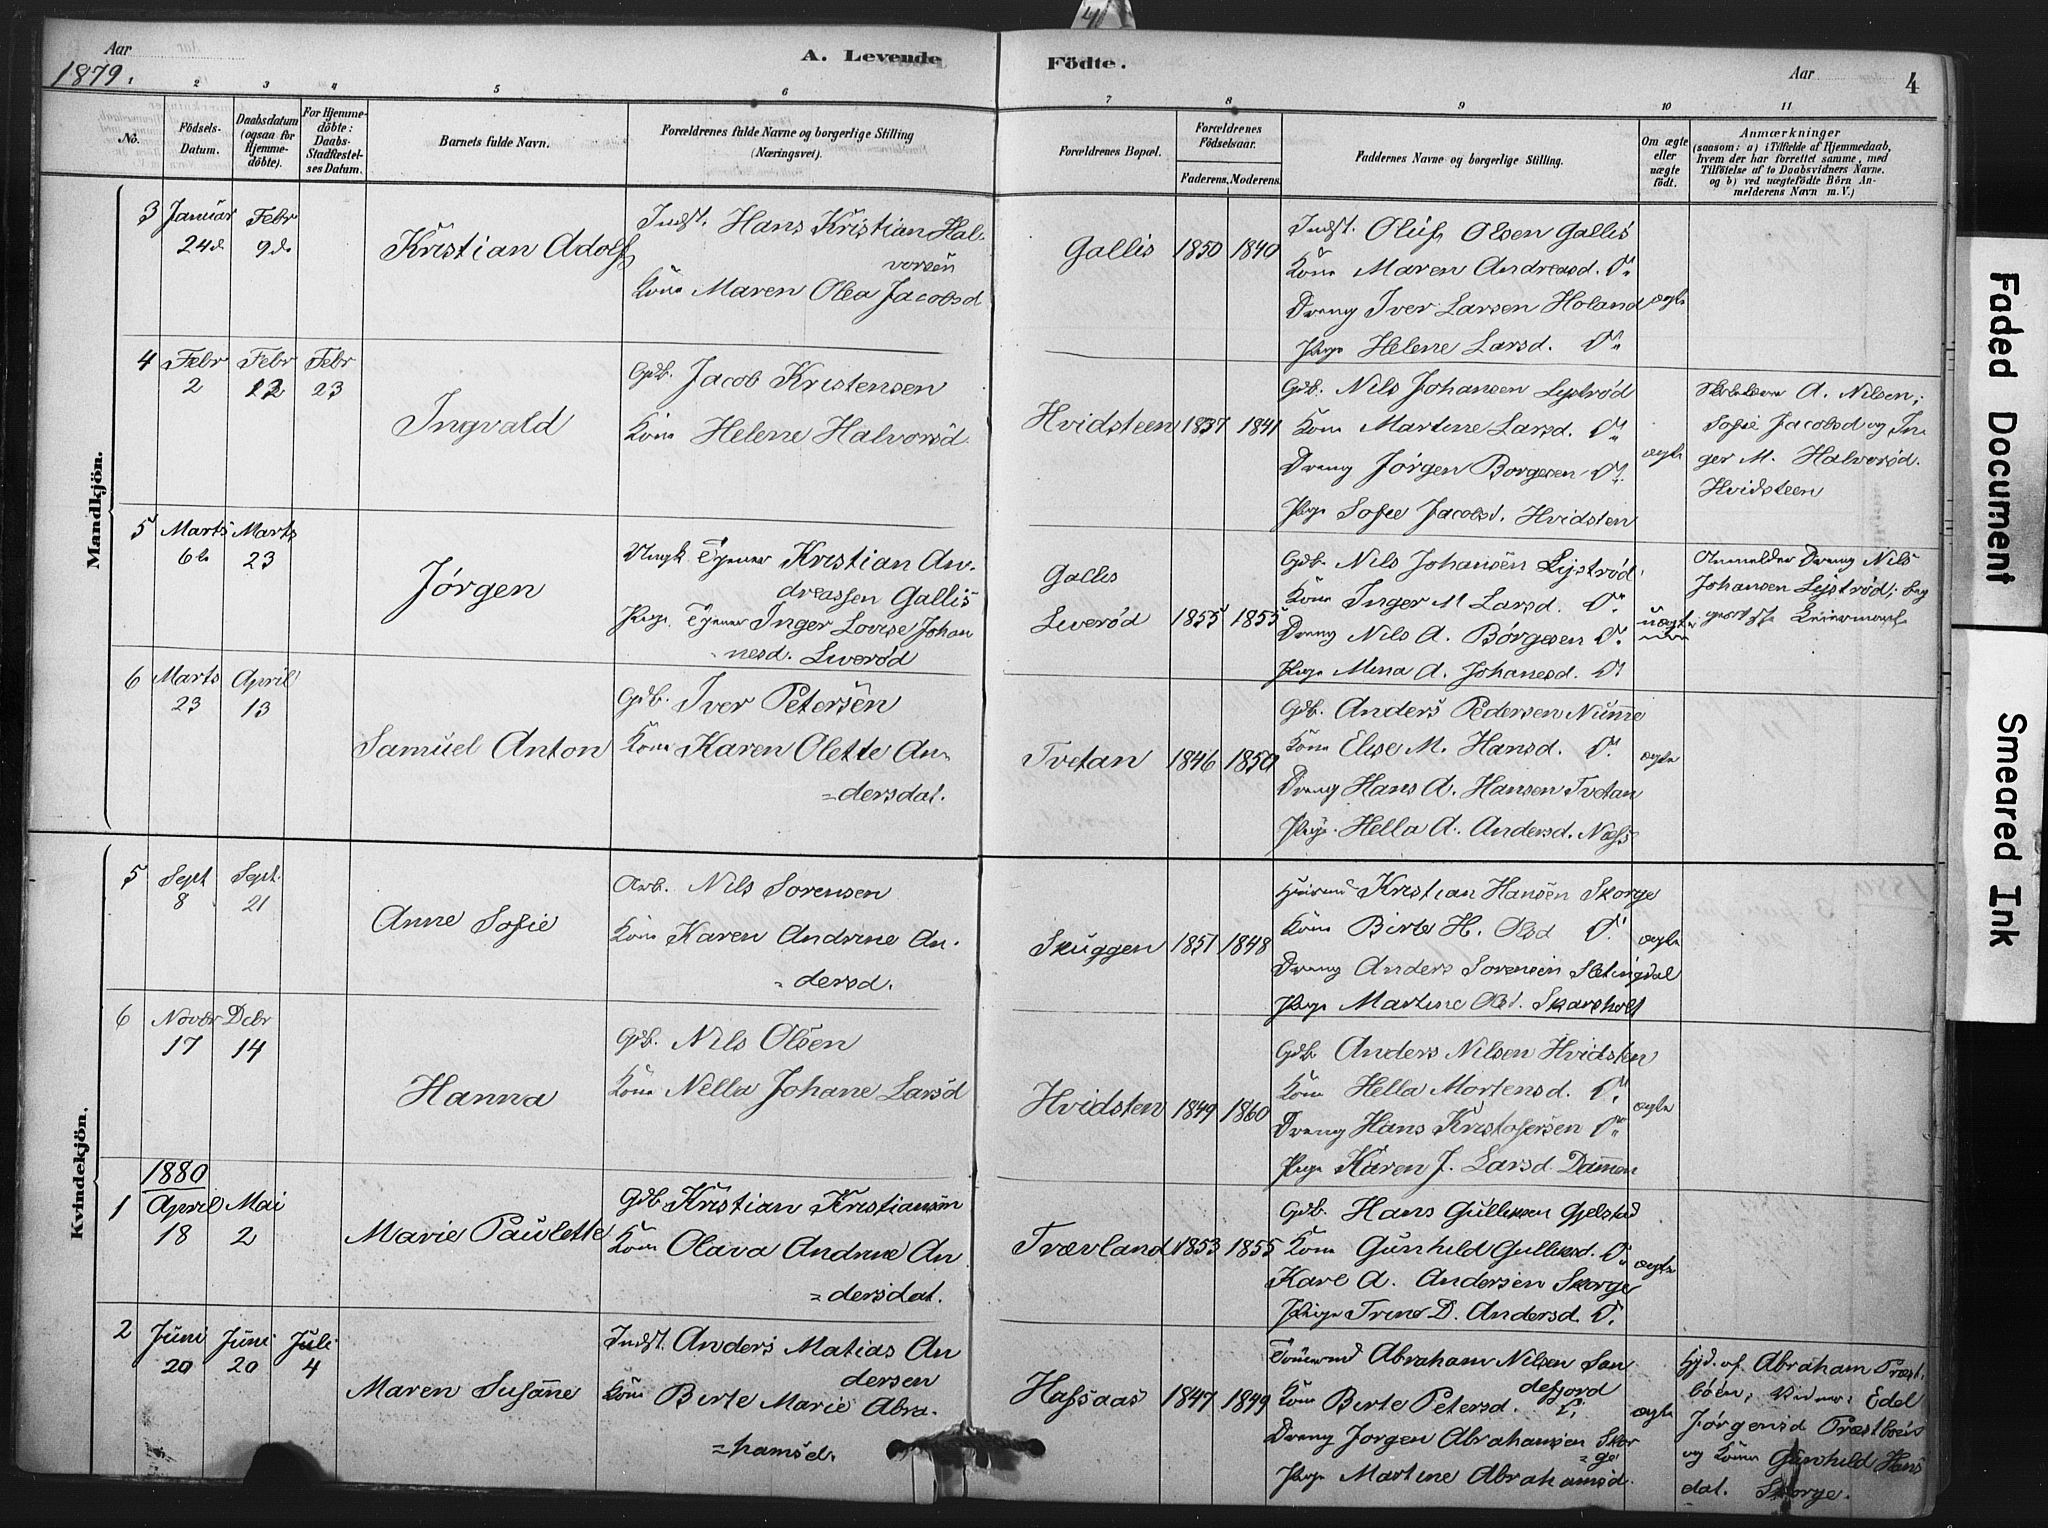 4
Aar
1879.
A. Levende
Födte.
Aar
4
1
2
3
4
5
6
7
8
9
10
11
No.
Födsels-
Datum.
Daabsdatum
(ogsaa for
Hjemme-
döbte).
For Hjemme-
döbte:
Daabs-
Stadfæstel-
ses Datum.
Barnets fulde Navn.
Forældrenes fulde Navne og borgerlige Stilling
(Næringsvei).
Forældrenes Bopæl.
Forældrenes
Födselsaar.
Faderens.
Moderens.
Faddernes Navne og borgerlige Stilling.
Om ægte
eller
uægte
födt.
Anmærkninger
(saasom: a) i Tilfælde af Hjemmedaab,
hvem der har forrettet samme, med
Tilföielse af to Daabsvidners Navne.
og b) ved uægtefödte Börn An-
melderens Navn m. V.)
Mandkjön.
3
Januar
24de
Febr
9de
Kristian Adolf
Indst. Hans Kristian Hal-
vorsen
Kone Maren Olea Jacobsd
Gallis
1850
1840
Indst. Oluf Olsen Gallis
Kone Maren Andreasd. Do
Dreng Iver Larsen Holand
Pige Helene Larsd. Do
ægte
4
Febr
2
Febr
12
Febr
23
Ingvald
Gdb. Jacob Kristensen
Kone Helene Halvorsd
Hvidsteen
1837
1841
Gdb. Nils Johansen Lystrød
Kone Martine Larsd. Do
Dreng Jørgen Borgesen Do
Pige Sofie Jacobsd. Hvidsten
ægte
A. Nilsen;
Sofie Jacobsd og In-
ger M. Halvorsd.
Hvidsteen
5
Marts
6te
Marts
23
Jørgen
Ungk Tjener Kristian An-
dreassen Gallis
Pige Tjener Inger Lovise Johan
nesd. Liverød
Gallis
Liverød
1855
1855
Gdb. Nils Johansen Lystrød
Kone Inger M Larsd. Do
Dreng Nils A. Børgesen Do
Pige Mina A. Johanesd. Do
uægte
Anmelder Dreng Nils
Johansen Lystrød;
Leiermaal
6
Marts
23
April
13
Samuel Anton
Gdb. Iver Petersen
Kone Karen Olette An-
=dersdat.
Tvetan
1846
1850
Gdb. Anders Pedersen Numme
Kone Elise M. Hansd. Do
Dreng Hans A. Hansen Tvetan
Pige Hella A. Andersd. Næss
ægte
Kvindekjön.
5
Sept
8
Sept.
21
Anne Sofie
Arb. Nils Sorensen
Kone Karen Andrine An-
=dersd.
Skuggen
1851
1848
Kristian Hansen Skorge
Kone Birte H. Olsd Do
Dreng Anders Sorensen Sletingdal
Pige Martine Olsd. Skarsholt
ægte
6
Novbr
17
Debr
14
Hanna
Gdb. Nils Olsen
Kone Nella Johane Larsd
Hvidsten
1849
1860
Gdb Anders Nilsen Hvidsten
Kone Hella Mortensd. Do
Dreng Hans Kristofersen Do
Pige Karen J. Larsd. Dammen
ægte
1880
1
April
18
Mai
2
Marie Paulette
Gdb Kristian Kristiansen
Kone Olava Andrine An
=dersdat.
Tvævland
1853
1855
Gdb. Hans Gulliksen Gjelstad
Kone Gunhild Gulliksd. Do
Karl A. Andersen Skorge
Pige Trine D. Andersd. Do
ægte
2
Juni
20
Juni
20
Juli
4
Maren Susanne
Indst. Anders Matias An
dersen
Kone Birte Marie Abra-
=hamsd.
Hassaas
1847
1849
Abraham Nilsen San
defjord
Kone Birte Petersd. Do
Dreng Jorgen Abrahamsen Skor
=ge
Pige Martine Abrahamsd.
ægte
Hjd. af Abraham Præst-
böen; Vidner: Edel
Jørgensd Præstböen
og Kone Gunhild Hans
dat. Skorge.
Faded Document
Smeared Ink